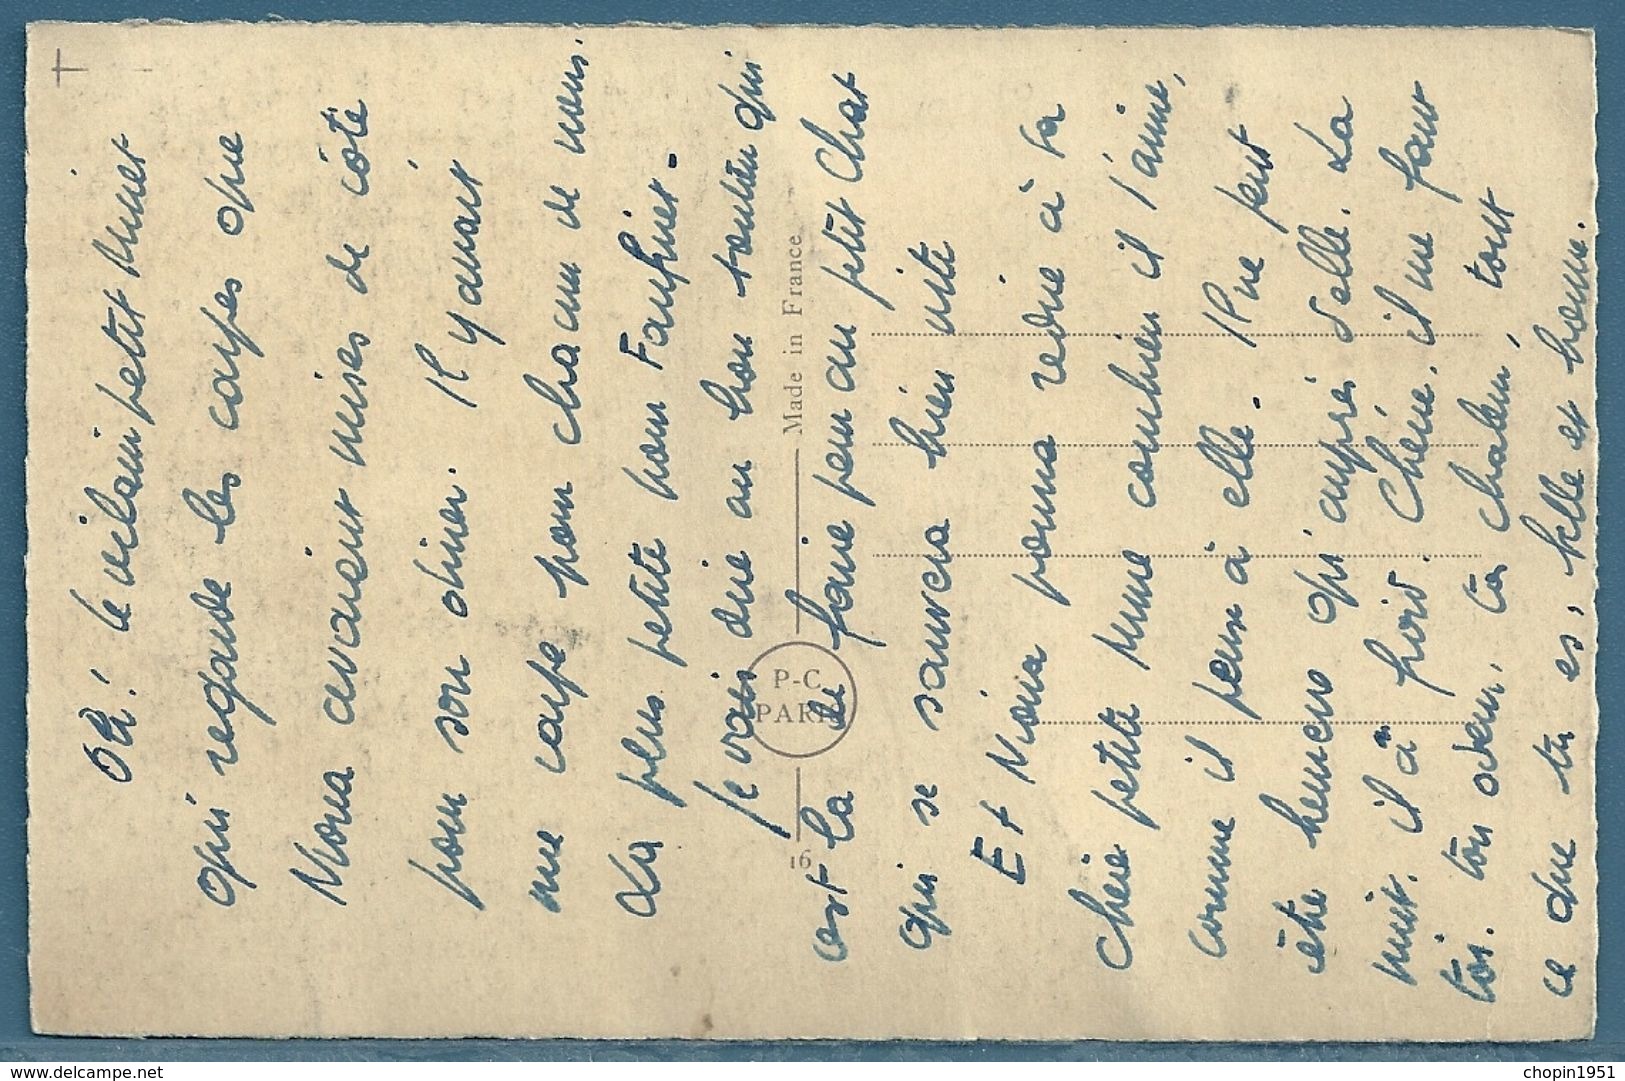 Oh! le vilain petit minet
qui regarde les carpes que
Mona avaient mises de côté
pour son dîner. Il y avait
une carpe pour chacun de nous.
La plus petite pour
je vais dire au bon toutou qui
est là de faire peur au petit chat
qui se sauvera bien vite
Et Mona pourra redire à sa
chère petite mume combien il l'aime,
comme il pense à elle. Il ne peut
être heureux qu'auprés d'elle. La
nuit, il à froid. Chérie, il me faut
toi. ton odeur, ta chaleur, tout
ce que tu es, belle et bonne.
Made in France
P-C
PARIS
16
delcampe.net
chopin1951